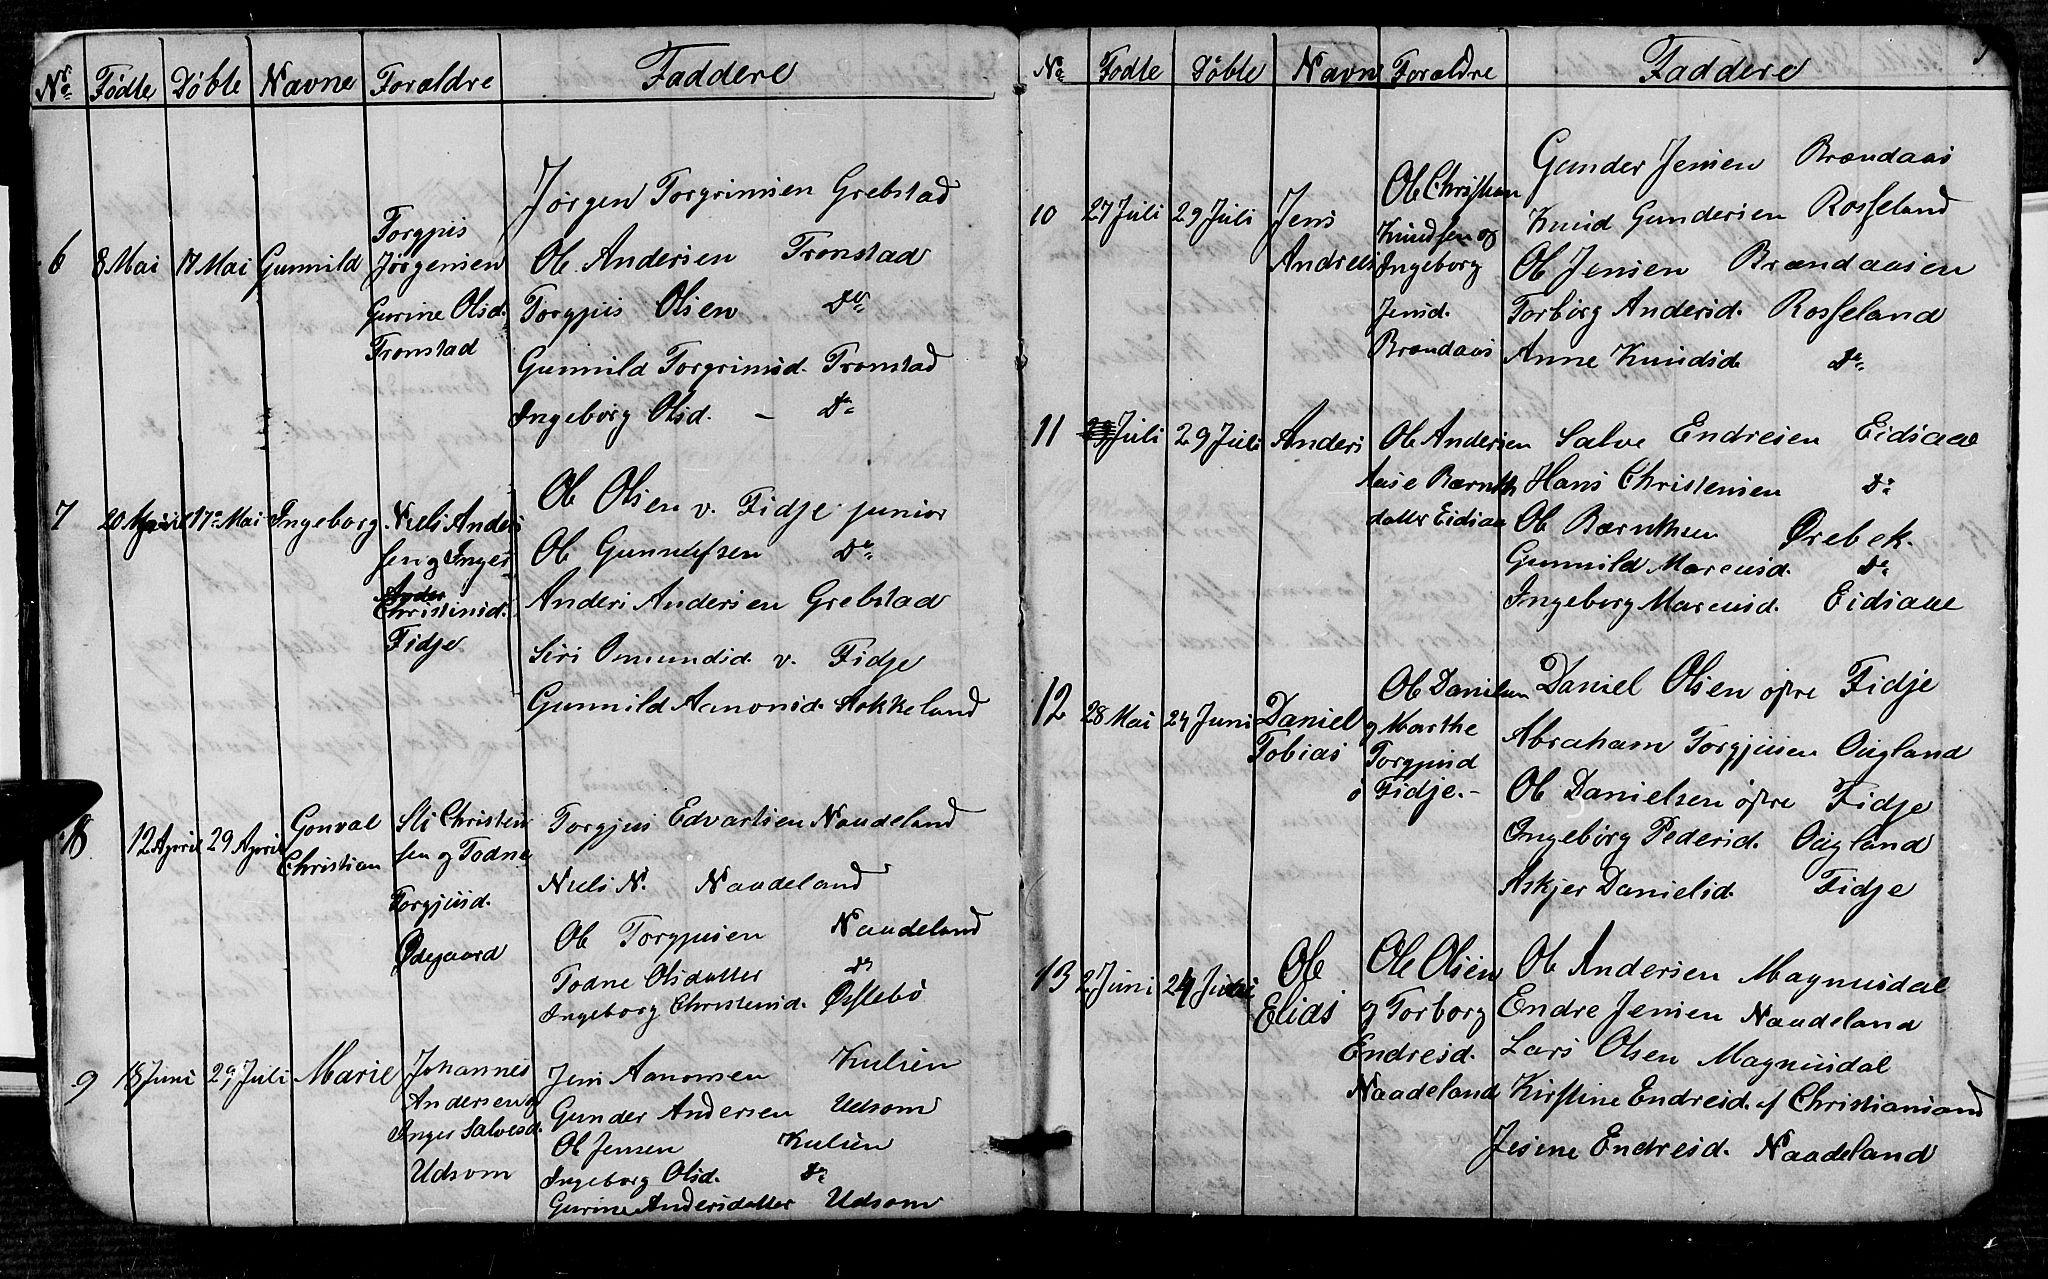 No. Fødte Døbte Navne Foraldre Faddere
6 8 Mai 17 Mai Gunnild
Torgjus
Jørgensen
Gurine Olsd.
Tronstad
Jørgen Torgrimsen Grebstad
Ole Andersen Tronstad
Torgjus Olsen Do
Gunnild Torgrimsd. Tronstad
Ingeborg Olsd. - Do
7 17 Mai Ingeborg
Niels Anders
sen og Inger
Christensd.
Fidje
Ole Olsen v. Fidje junior
Ole Gunnulfsen Do
Anders Andersen Grebstad
Siri Omundsd. v. Fidje
Gunnild Aanonsd. Stokkeland
8 12 April 29 April Gonval
Christian
Sli Christen
sen og Todne
Torgjusd.
Ødegaard
Torgjus Edvartsen Naudeland
Niels N. Naadeland
Ole Torgjusen Naudeland
Todne Olsdatter Do
Ingeborg Christensd. Øsslebø
9 18 Juni 29 Juli Marie
Johannes
Andersen og
Inger Salvesd.
Udsom
Jens Aanonsen Kulien
Gunder Andersen Udsom
Ole Jensen Kulien
Ingeborg Olsd. Do
Gurine Andersdatter Udsom
No. Fodte Døbte Navn Foraldre Faddere
10 27 Juli 29 Juli Jens
Andreas
Ole Christian
Knudsen og
Ingeborg
Jensd.
Brændaas
Gunder Jensen Brændaas
Knud Gundersen Rosseland
Ole Jensen Brændaasen
Torborg Andersd. Rosseland
Anne Knudsd Do
11 Juli 29 Juli Anders
Ole Andersen
Aase Bærnth
datter Eidsaa
Salve Endresen Eidsaae
Hans Christensen Do
Ole Bærntsen Ørebek.
Gunnild Marcusd. Do
Ingeborg Marcusd. Eidsaae
12 28 Mai 24 Juni Daniel
Tobias
Ole Danielsen
og Marthe
Torgjusd
ø Fidje.-
Daniel Olsen øfre Fidje
Abraham Torgjusen Øigland
Ole Danielsen øfre Fidje
Ingeborg Pedersd. Øigland
Askjer Danielsd. Fidje
13 2 Juni 24 Ole
Elias
Ole Olsen
og Torborg
Endresd.
Naadeland
Ole Andersen Magnusdal
Endre Jensen Naudeland
Lars Olsen Magnusdal
Kirstine Endresd. af Christiansand
Jesine Endresd. Naadeland